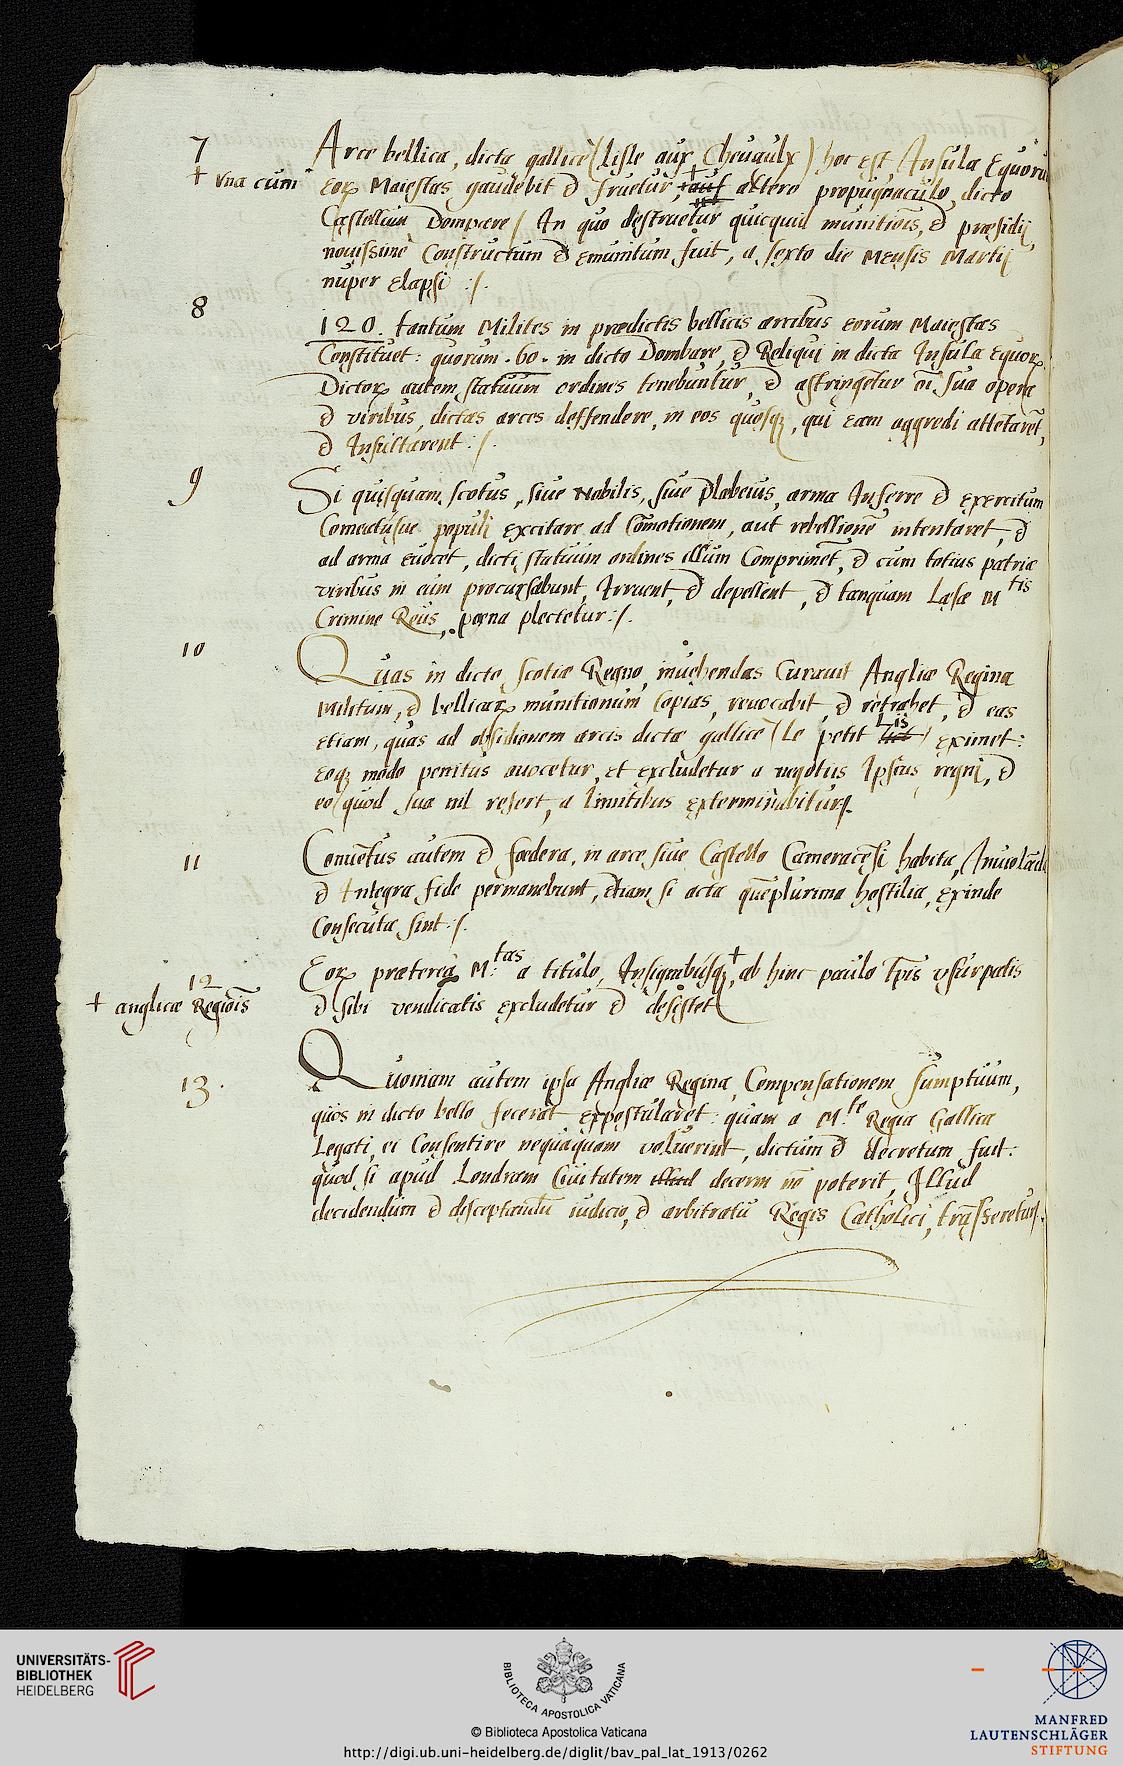 7
Arce bellica, dicta gallice (lisle aux Cheuaulx) hoc est, Insula Equorũ
+ vna cum
Eorꝝ Maiestas gaudebit & fruetur, + aut altero propugnaculo, dicto
Castellum Dompere / In quo destruetur quicquid munitiois, & præsidij,
nouissime Constructum & Emunitum fuit, a sexto die Mensis Martij
nuper Elapsi :/.
8
120. tantum Milites in prædictis bellicis arcibus eorum Maiestas
Constituet: quorum .60. in dicto Dombare, & Reliqui in dicta Insula Equorꝝ
Dictorꝝ autem statuum ordines tenebuntur, & astringetur oi sua opera
& viribus, dictas arces deffendere, in eos quosqꝫ, qui eam aggredi attẽtarẽt,
& Insultarent :/.
9
Si quisquam Scotus, siue Nobilis, siue Plabeius, arma Inferre & exercitum
populi excitare ad Com̃otionem, aut rebellionẽ intentaret, &
ad arma Euocet, dicti statuum ordines illum Comprimẽt, & cum totius patriæ
viribus in eum procursabunt, Irruent, & depellent, & tanquam Læsæ M tis
Crimine Reus, pœna plectetur :/.
10
Quas in dicto Scotiæ Regno, inuehendas Curauit Angliæ Regina
Militum, & bellicarꝝ munitionum Copias, reuocabit, & retrahet, & eas
Etiam, quas ad obsidionem arcis dictæ gallice (Le petit Lis Lict) eximet:
Eoqꝫ modo penitus auocetur, et excludetur a negotiis Ipsius regni, &
eo/quod sua nil refert, a limitibus exterminabitur/.
11
Conuẽtus autem & fœdera, in arce siue Castello Cameracẽsi habita, Inuiolata
& Integra fide permanebunt, Etiam si acta quẽplurima hostilia, exinde
Consecuta sint :/.
12
Eorꝝ præterea M.tas a titulo, Insignibusqꝫ +, ab hinc paulo tp̃is vsurpatis
+ anglicæ Regiois
& sibi vendicatis excludetur & desistet
13.
Quoniam autem ipsa Angliæ Regina, Compensationem sumptuum,
quos in dicto bello fecerat expostularet: quam a M.te Regia Gallica
Legati, ei Consentire nequaquam voluerint, dictum & decretum fuit:
quod si apud Londram Ciuitatem illud decerni nõ poterit, Illud
decidendum & disceptandũ iudicio, & arbitratu Regis Catholici, trãsseretur/.
UNIVERSITÄTS-
BIBLIOTHEK
HEIDELBERG
BIBLIOTECA APOSTOLICA VATICANA
© Biblioteca Apostolica Vaticana
http://digi.ub.uni-heidelberg.de/diglit/bav_pal_lat_1913/0262
MANFRED
LAUTENSCHLÄGER
STIFTUNG